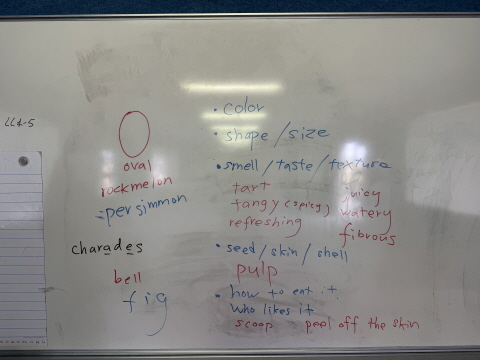 LL4-5
oval
rockmelon
persimmon
charades
bell
fig
• color
• shape / size
• smell / taste / texture
tart
juicy
tangy (spicy)
watery
refreshing
fibrous
• seed / skin / shell
pulp
• how to eat it
who likes it
scoop peel off the skin